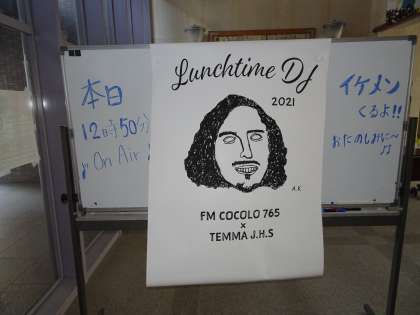 本日
12時50分
♪On Air♪
Lunchtime DJ
2021
A.K
FM COCOLO 765
×
TEMMA J.H.S
イケメン
くるよ!!
おたのしみに〜
♫